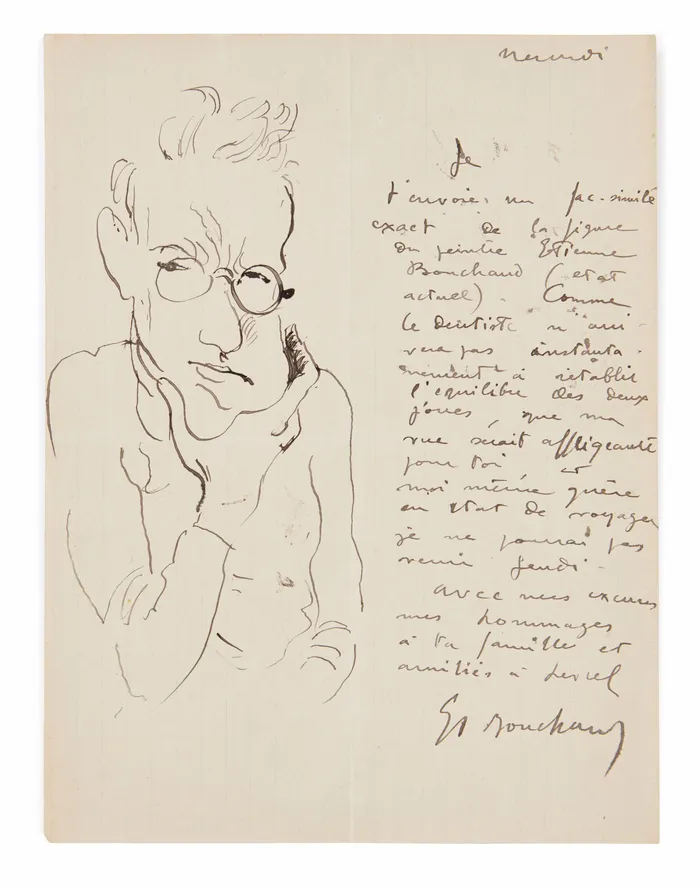 Je
t'envoie un fac-similé
exact de la figure
du peintre Etienne
Bouchaud (etat
actuel). Comme
le dentiste n'arri-
vera pas instanta-
nement à rétablir
l'equilibre des deux
joues, que ma
vue serait affligeante
pour toi et
moi même guère
en état de voyager
je ne pourrai pas
venir jeudi.
avec mes excuses
mes hommages
à ta famille et
amitiés à
Et Bouchaud